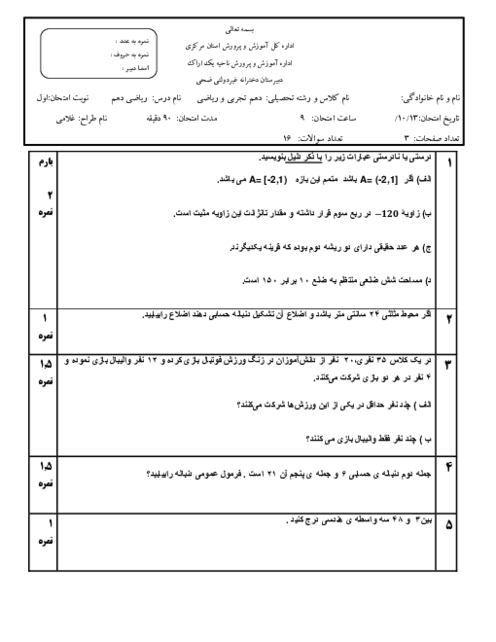 بسمه تعالی
اداره کل آموزش و پرورش استان مرکزی
اداره آموزش و پرورش ناحیه یک اراک
دبیرستان دخترانه غیردولتی ضحی
نمره به عدد :
نمره به حروف :
امضا دبیر :
نام و نام خانوادگی: نام کلاس و رشته تحصیلی: دهم تجربی و ریاضی نام درس: ریاضی دهم نوبت امتحان:اول
تاریخ امتحان:۱۰/۱۳/ ساعت امتحان: ۹ مدت امتحان: ۹۰ دقیقه نام طراح: غلامی
تعداد صفحات: ۳ تعداد سوالات: ۱۶
بارم
۱ درستی یا نادرستی عبارات زیر را با ذکر دلیل بنویسید.
الف) اگر A= (-2,1] باشد متمم این بازه A= [-2,1) می باشد.
۲ نمره
ب) زاویه 120− در ربع سوم قرار داشته و مقدار تانژانت این زاویه مثبت است.
ج) هر عدد حقیقی دارای دو ریشه دوم بوده که قرینه یکدیگرند.
د) مساحت شش ضلعی منتظم به ضلع ۱۰ برابر ۱۵۰ است.
۲ اگر محیط مثلثی ۲۴ سانتی متر باشد و اضلاع آن تشکیل دنباله حسابی دهند اضلاع را بیابید.
۱ نمره
۳ در یک کلاس ۳۵ نفری، ۲۰ نفر از دانش‌آموزان در زنگ ورزش فوتبال بازی کرده و ۱۲ نفر والیبال بازی نموده و
۴ نفر در هر دو بازی شرکت می‌کنند.
۱,۵ نمره
الف ) چند نفر حداقل در یکی از این ورزش‌ها شرکت می‌کنند؟
ب ) چند نفر فقط والیبال بازی می کنند؟
۴ جمله دوم دنباله ی حسابی ۶ و جمله ی پنجم آن ۲۱ است . فرمول عمومی دنباله را بیابید؟
۱,۵ نمره
۵ بین ۳ و ۴۸ سه واسطه ی هندسی درج کنید .
۱ نمره